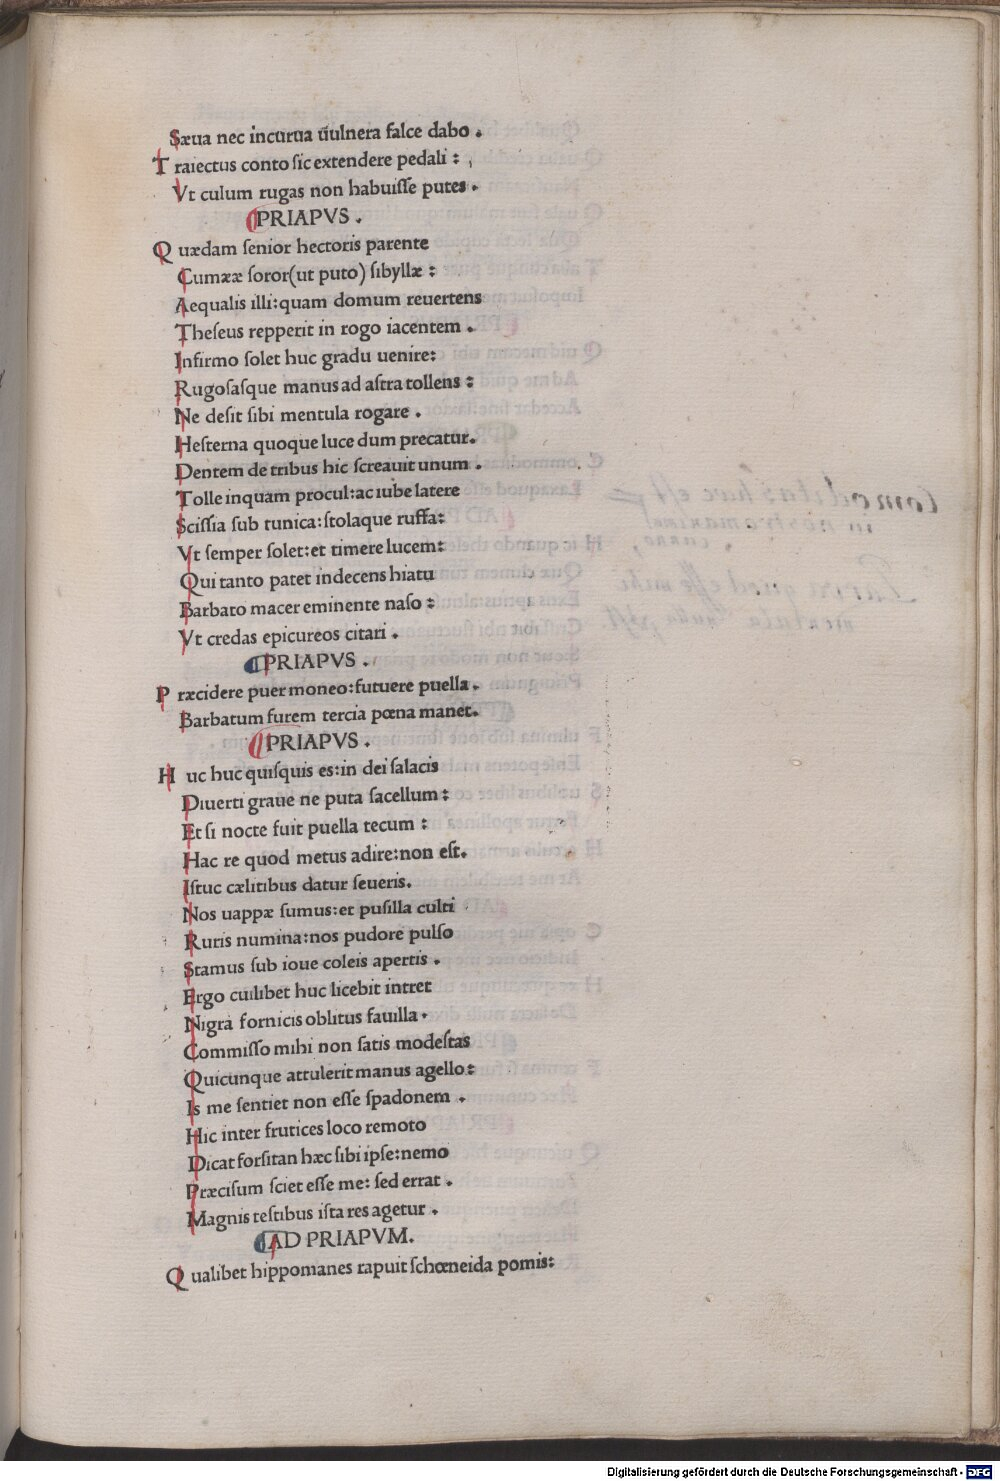 Sæua nec incurua ũulnera falce dabo .
T raiectus conto sic extendere pedali :
Vt culum rugas non habuisse putes .
PRIAPVS .
Q uædam senior hectoris parente
Cumææ soror(ut puto) sibyllæ :
Aequalis illi:quam domum reuertens
Theseus repperit in rogo iacentem .
Infirmo solet huc gradu uenire:
Rugosasque manus ad astra tollens :
Ne desit sibi mentula rogare .
Hesterna quoque luce dum precatur.
Dentem de tribus hic screauit unum .
Tolle inquam procul:ac iube latere
Scissia sub tunica:stolaque ruffa:
Vt semper solet:et timere lucem:
Qui tanto patet indecens hiatu
Barbato macer eminente naso :
Vt credas epicureos citari .
PRIAPVS .
P ræcidere puer moneo:futuere puella .
Barbatum furem tercia pœna manet.
PRIAPVS .
H uc huc quisquis es:in dei salacis
Diuerti graue ne puta sacellum :
Et si nocte fuit puella tecum :
Hac re quod metus adire:non est.
Istuc cælitibus datur seueris.
Nos uappæ sumus:et pusilla culti
Ruris numina:nos pudore pulso
Stamus sub ioue coleis apertis .
Ergo cuilibet huc licebit intret
Nigra fornicis oblitus fauilla .
Commisso mihi non satis modestas
Quicunque attulerit manus agello :
Is me sentiet non esse spadonem .
Hic inter frutices loco remoto
Dicat forsitan hæc sibi ipse:nemo
Præcisum sciet esse me: sed errat .
Magnis testibus ista res agetur .
AD PRIAPVM.
Q ualibet hippomanes rapuit schœneida pomis:
Digitalisierung gefördert durch die Deutsche Forschungsgemeinschaft - DFG